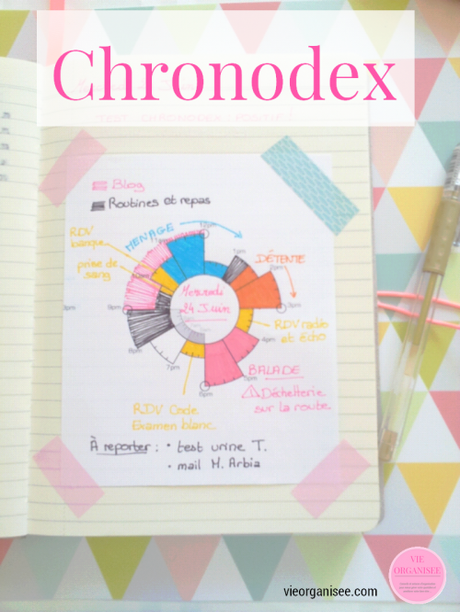 Chronodex
Blog
Routines et repas
RDV
banque
MENAGE
prise de
sang
DÉTENTE
Mercredi
24 Juin
RDV radio
et Echo
BALADE
Déchetterie
sur la route
RDV Code
Examen blanc
À reporter : • test urine T.
• mail M. Arbia
VIE
ORGANISEE
vieorganisee.com